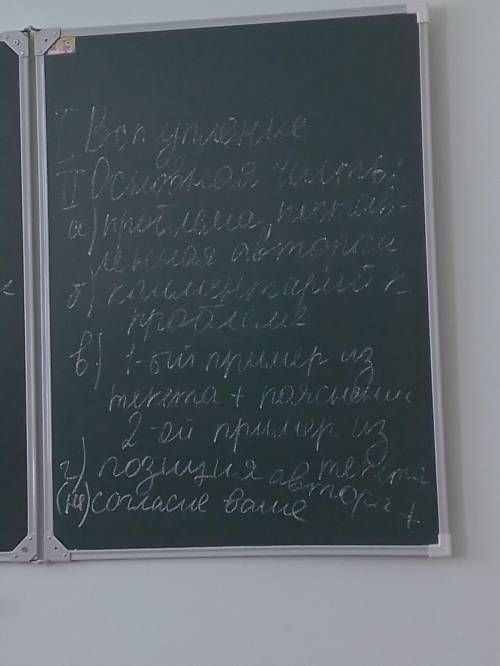 I Вступление
II Основная часть:
а) проблема, постав-
ленная автором
б) комментарий к
проблеме
в) 1-ый пример из
текста + пояснение
2-ой пример из
текста
г) позиция автора +
(не) согласие ваше